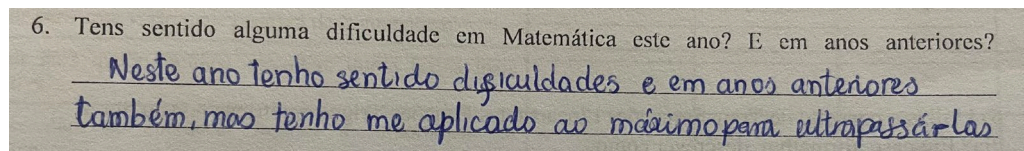 6. Tens sentido alguma dificuldade em Matemática este ano? E em anos anteriores?
Neste ano tenho sentido dificuldades e em anos anteriores
também, mas tenho me aplicado ao máximo para ultrapassár-las